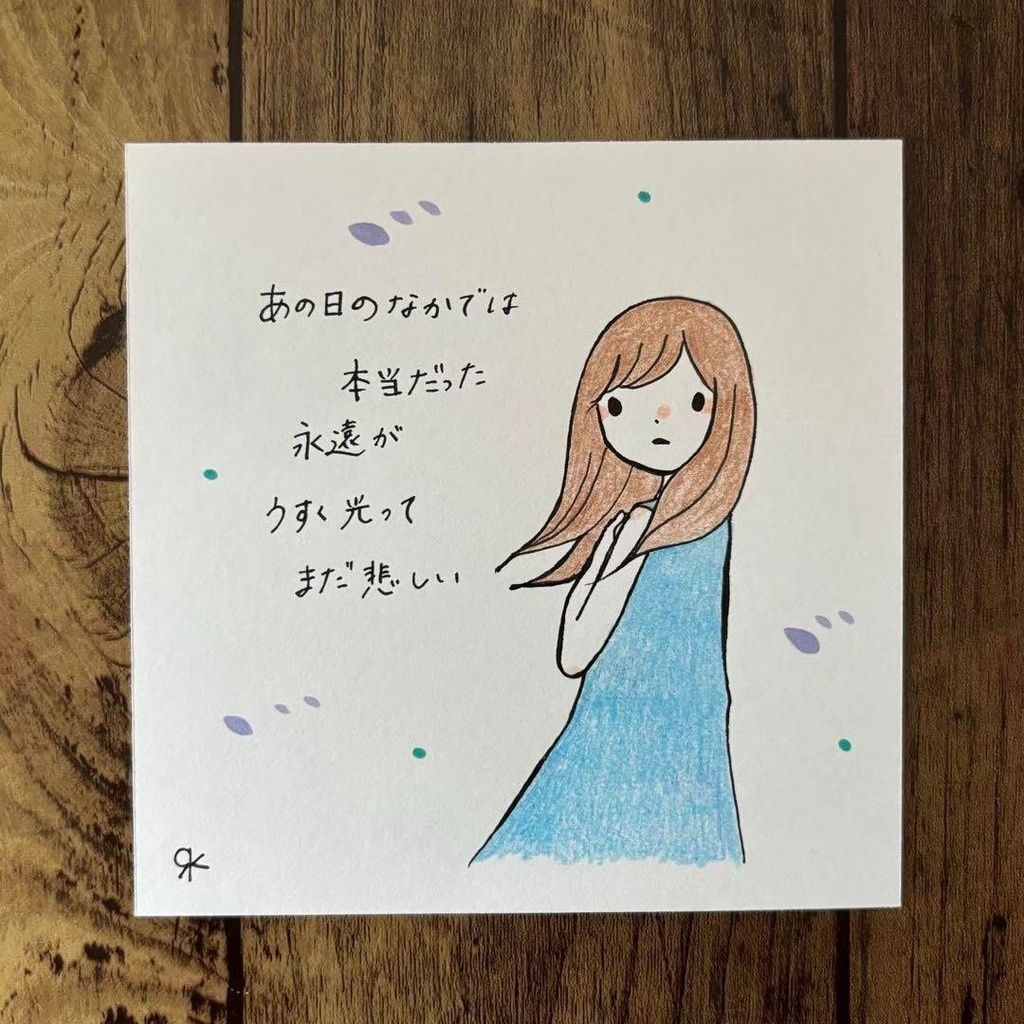 あの日のなかでは
本当だった
永遠が
うすく光って
まだ悲しい